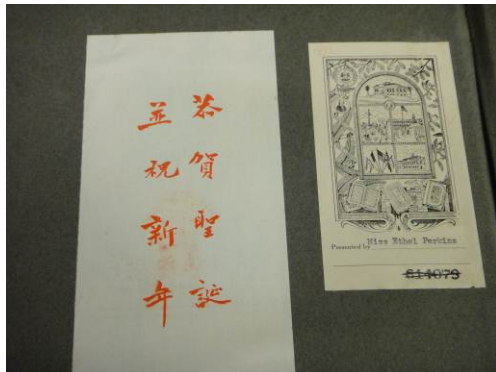 恭賀聖誕
並祝新年
Presented by Miss Ethel Perkins
614079